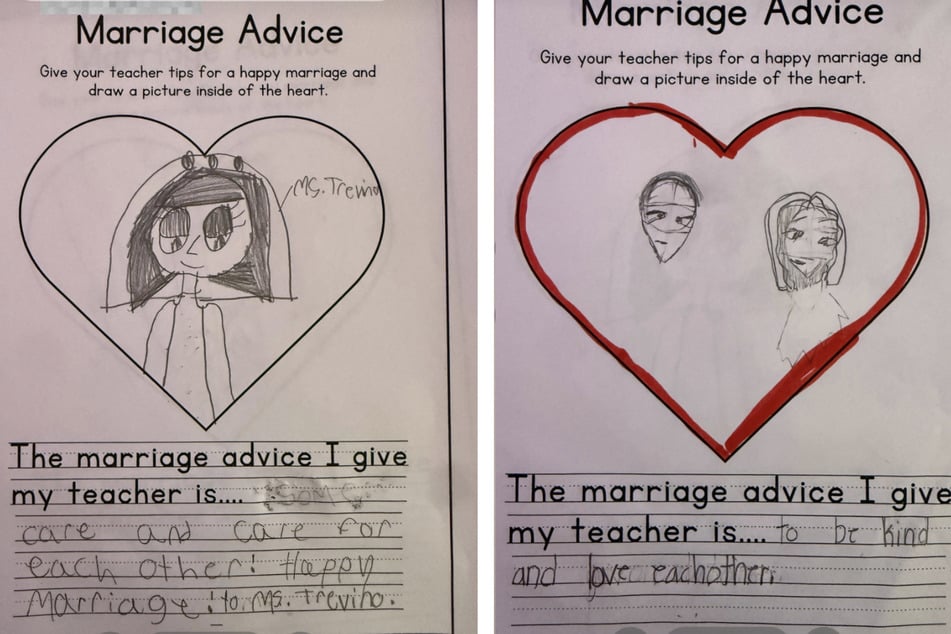 Marriage Advice
Give your teacher tips for a happy marriage and
draw a picture inside of the heart.
MS. Trevino
The marriage advice I give
my teacher is....
care and care for
each other! Happy
Marriage! to Ms. Trevino.
Marriage Advice
Give your teacher tips for a happy marriage and
draw a picture inside of the heart.
The marriage advice I give
my teacher is.... to be kind
and love eachother.